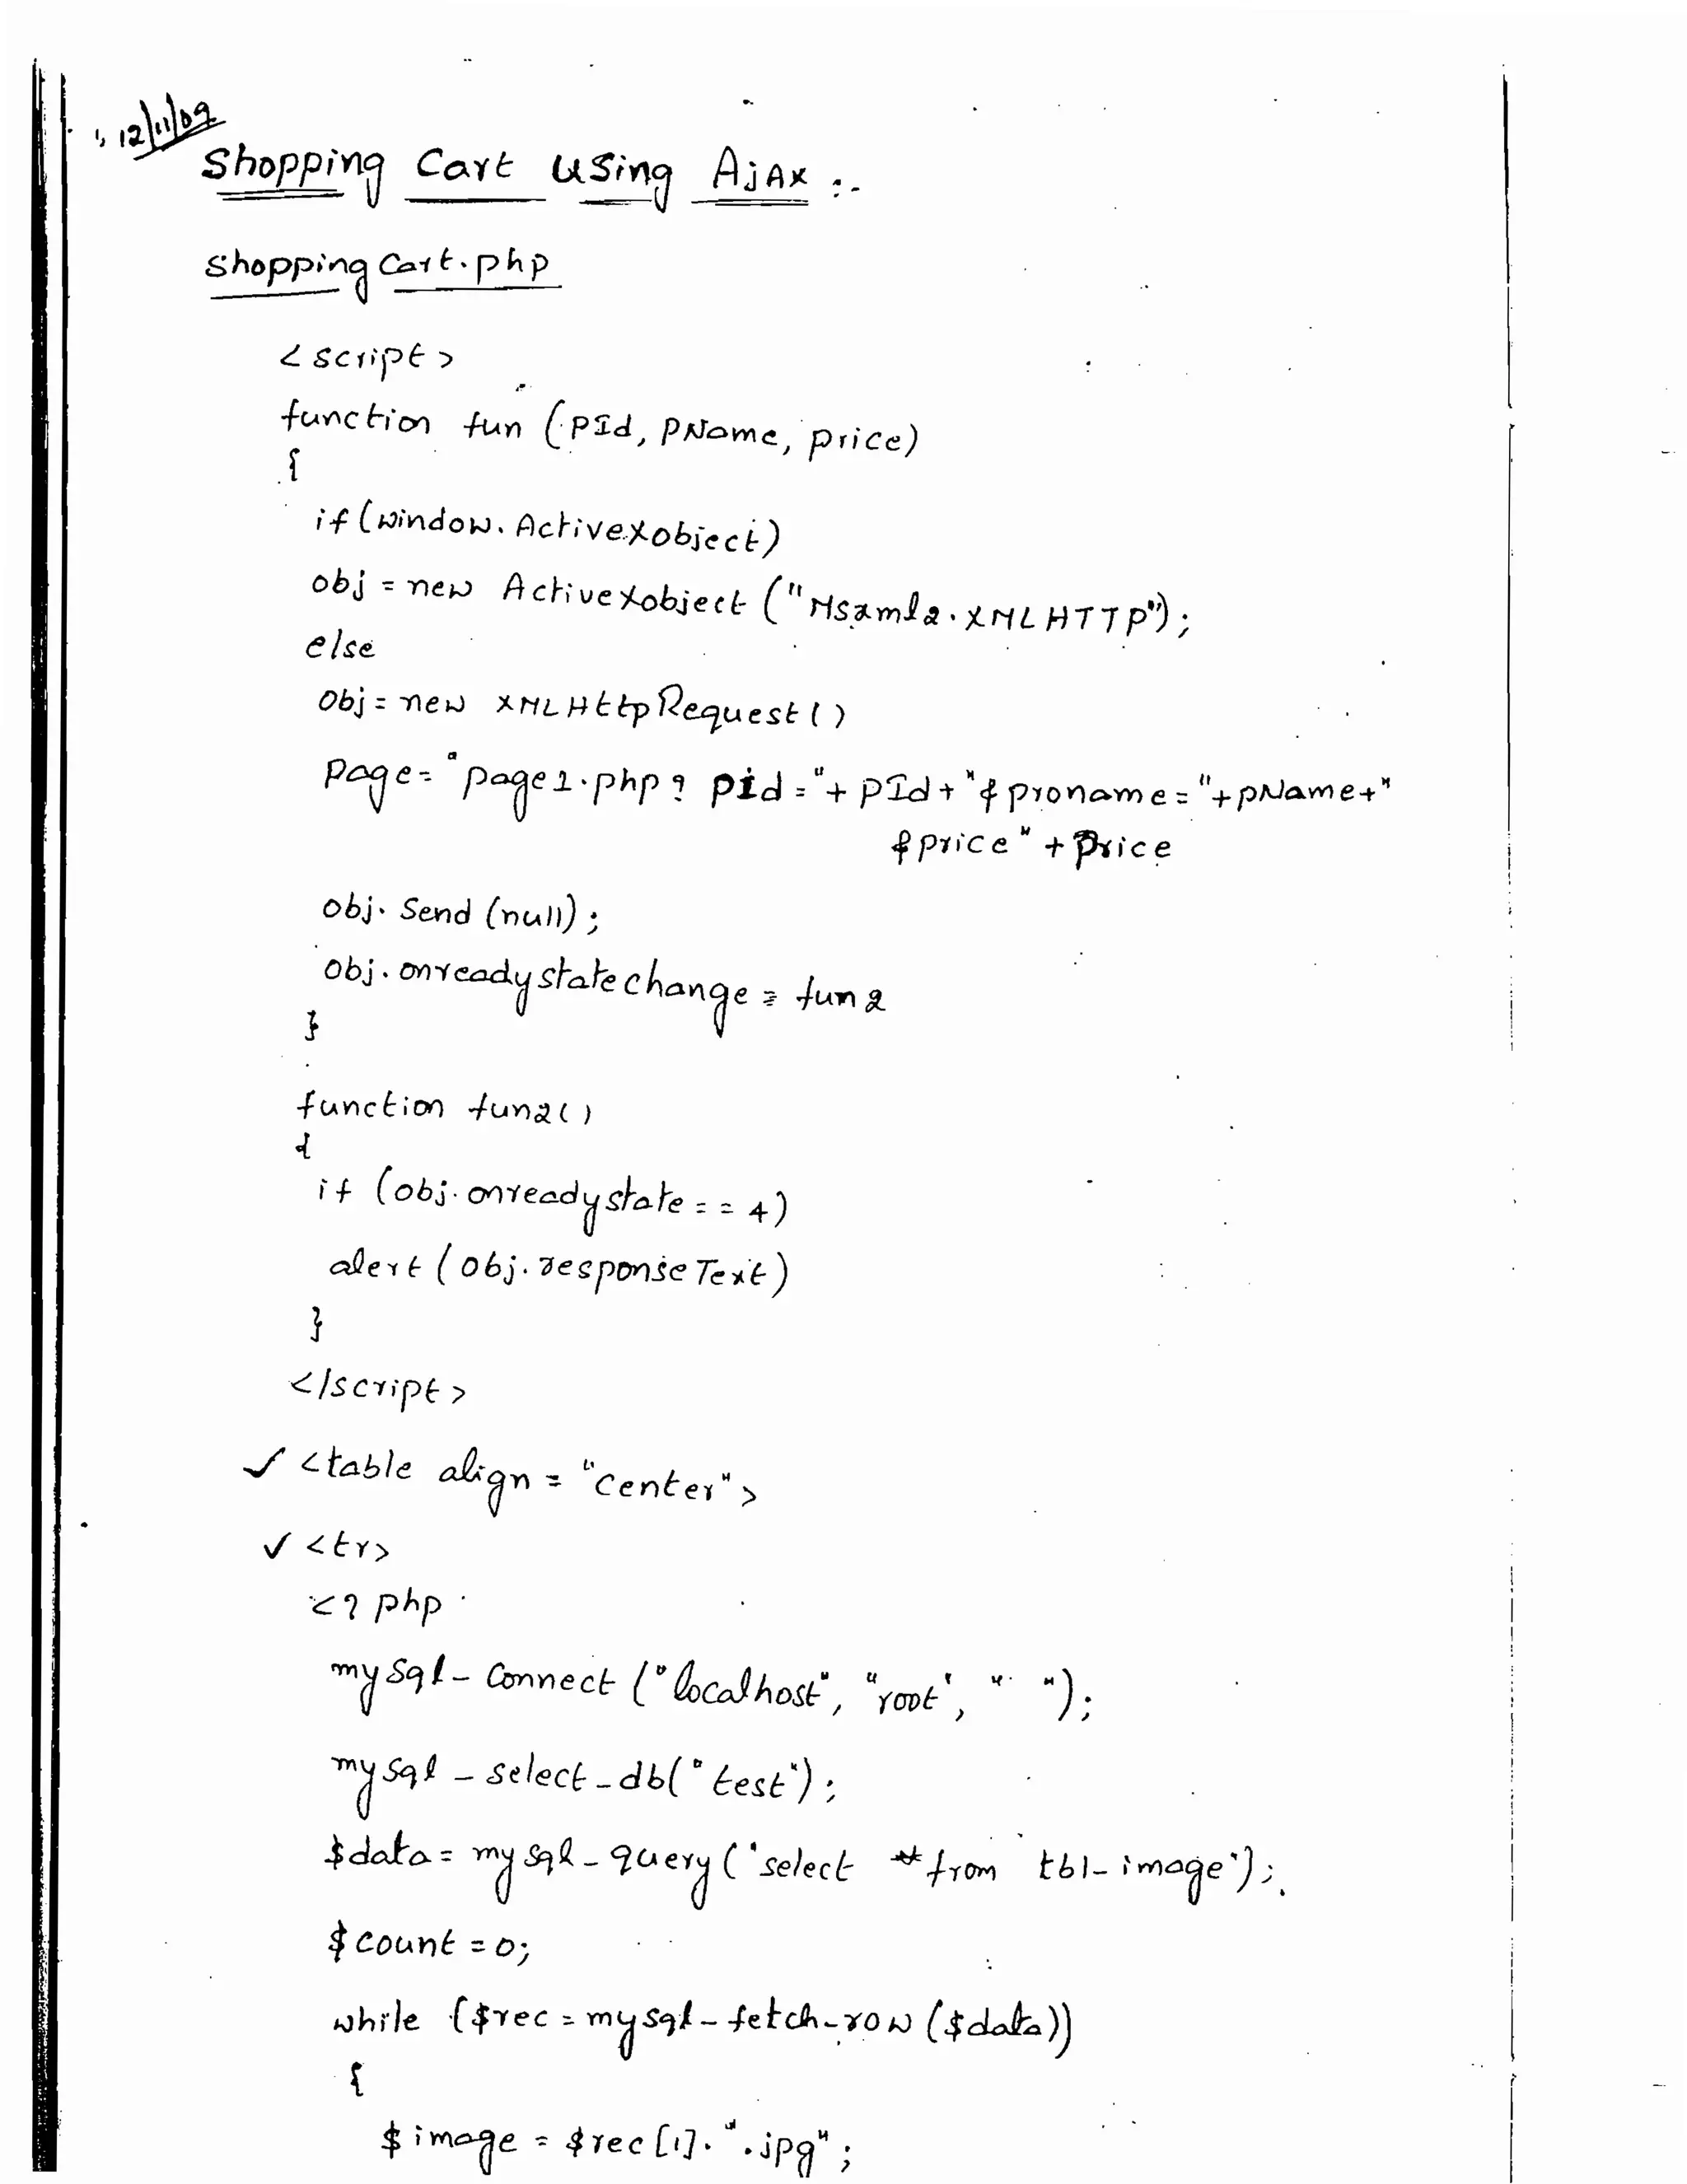 12/11/09
Shopping Cart Using AJAX :-
Shopping Cart.php
<script>
function fun (PId, PName, price)
{
if (window.ActiveXobject)
obj = new ActiveXobject ("Msxml2.XMLHTTP");
else
obj = new XMLHttpRequest()
page = "page1.php? pid ="+ pId + "& proname = "+pName+"
&price" + Price
obj. Send (null);
obj. onreadystatechange = fun2
}
function fun2()
{
if (obj. onreadystate == 4)
alert (obj. responseText)
}
</script>
✓ <table align = "center">
✓ <tr>
<? php
mysql-Connect ("localhost", "root", " ");
mysql - select - db("test");
$data = mysql - query ("select * from tbl-image");
$count = 0;
while ($rec = mysql - fetch - row ($data))
{
$image = $rec [1]. ".jpg";